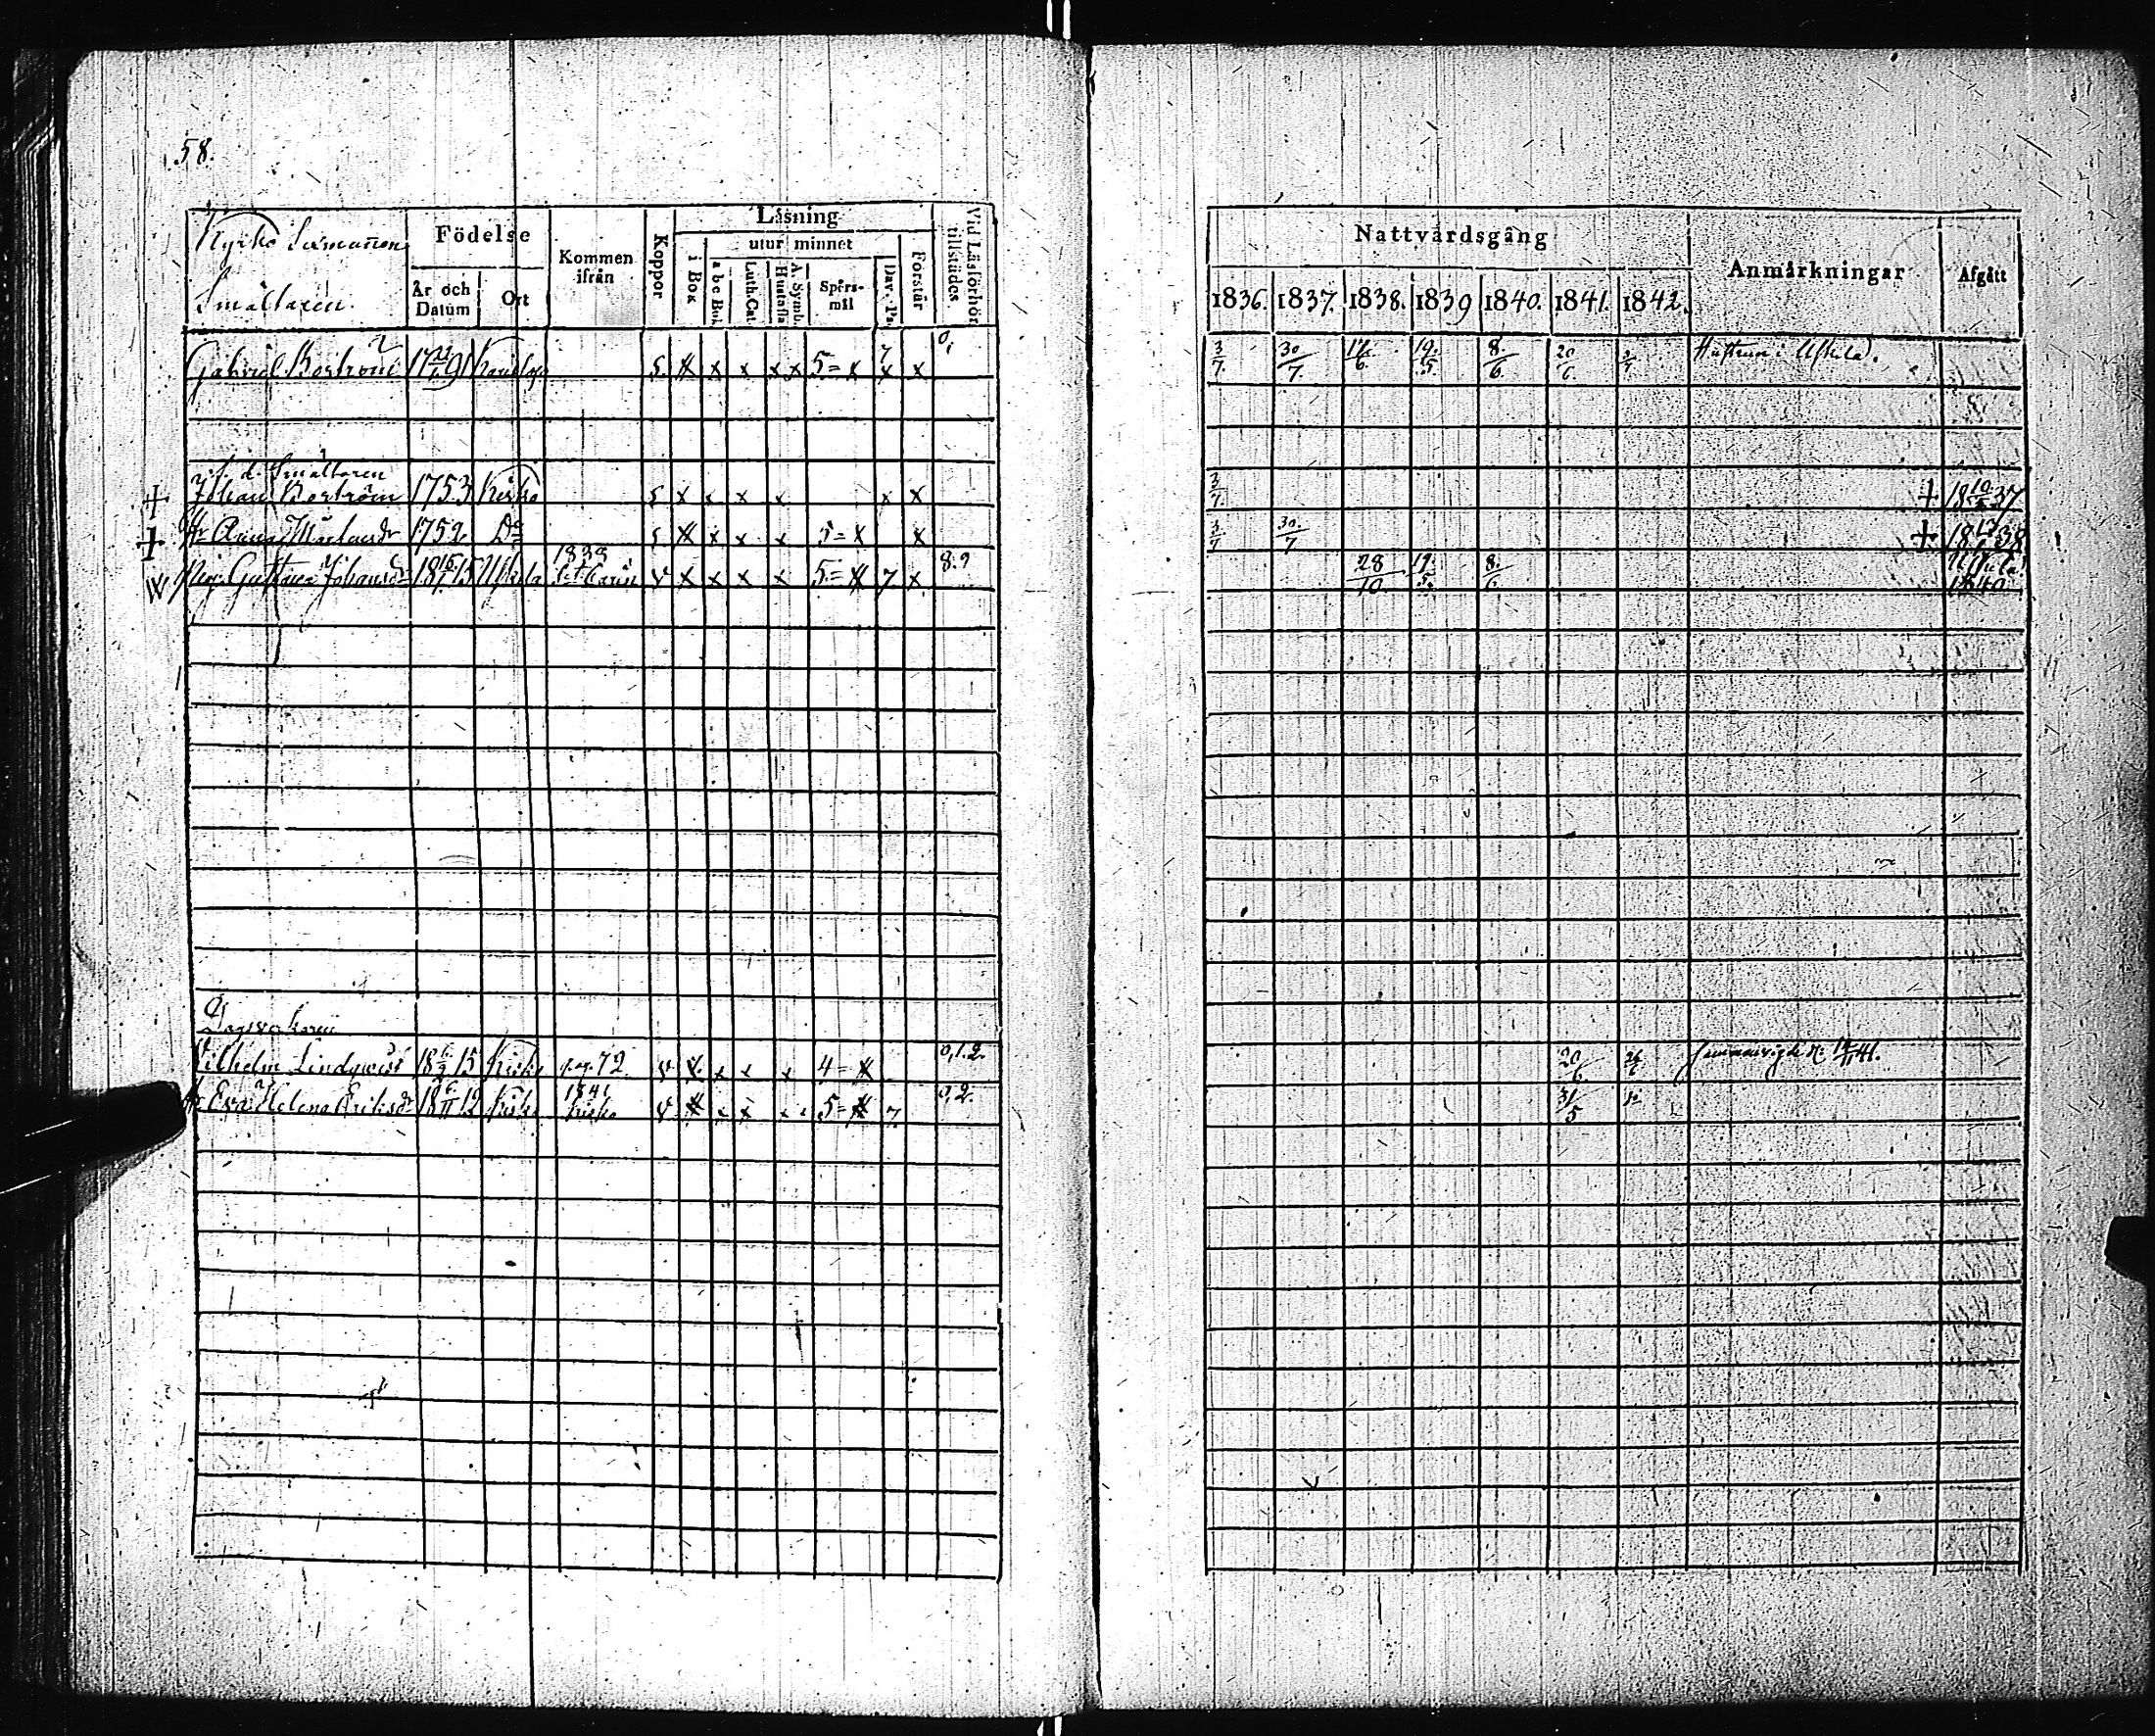 58.
Kyrko Sexmannen
Smältaren
Födelse
År och Datum
Ort
Kommen ifrån
Koppor
Läsning
i Bok
utur minnet
a b c Bok
Luth. Cat.
A. Symb. Hustafla
Spörs-mål
Dav. Ps.
Förstår
Vid Läsförhör tillstädes
Gabriel Boström 17 91 5 x x x x x 5= x 7 x x 0,
f. d. Smältaren
+ Johan Boström 1753 Kisko 5 x x x x x x
+ Hr Anna 1752 Do 5 x x x x 5= x x
Pig. Gustava Johansdr 18 15 Uskela 1838 x x x x 5= x 7 x 8.9
Dagsverkaren
Wilhelm Lindqvist 18 15 Kisko pag. 72. v x x x x 4= x 0,1.2.
Hr Eva Helena Eriksdr 18 6/11 12 Kisko 1841 Kisko v x x x x x 5= x 7. 0,2.
Nattvardsgång
1836. 1837. 1838. 1839 1840. 1841. 1842.
Anmärkningar
Afgått
3/7. 30/7. 17/6. 19/5 8/6 20/6. Hustrun i Uskela.
3/7. + 18 37
3/7 30/7 + 18 38
28/10. 19/5. 8/6 Uskela 1840
20/6. Sammanvigde d. 41.
31/5